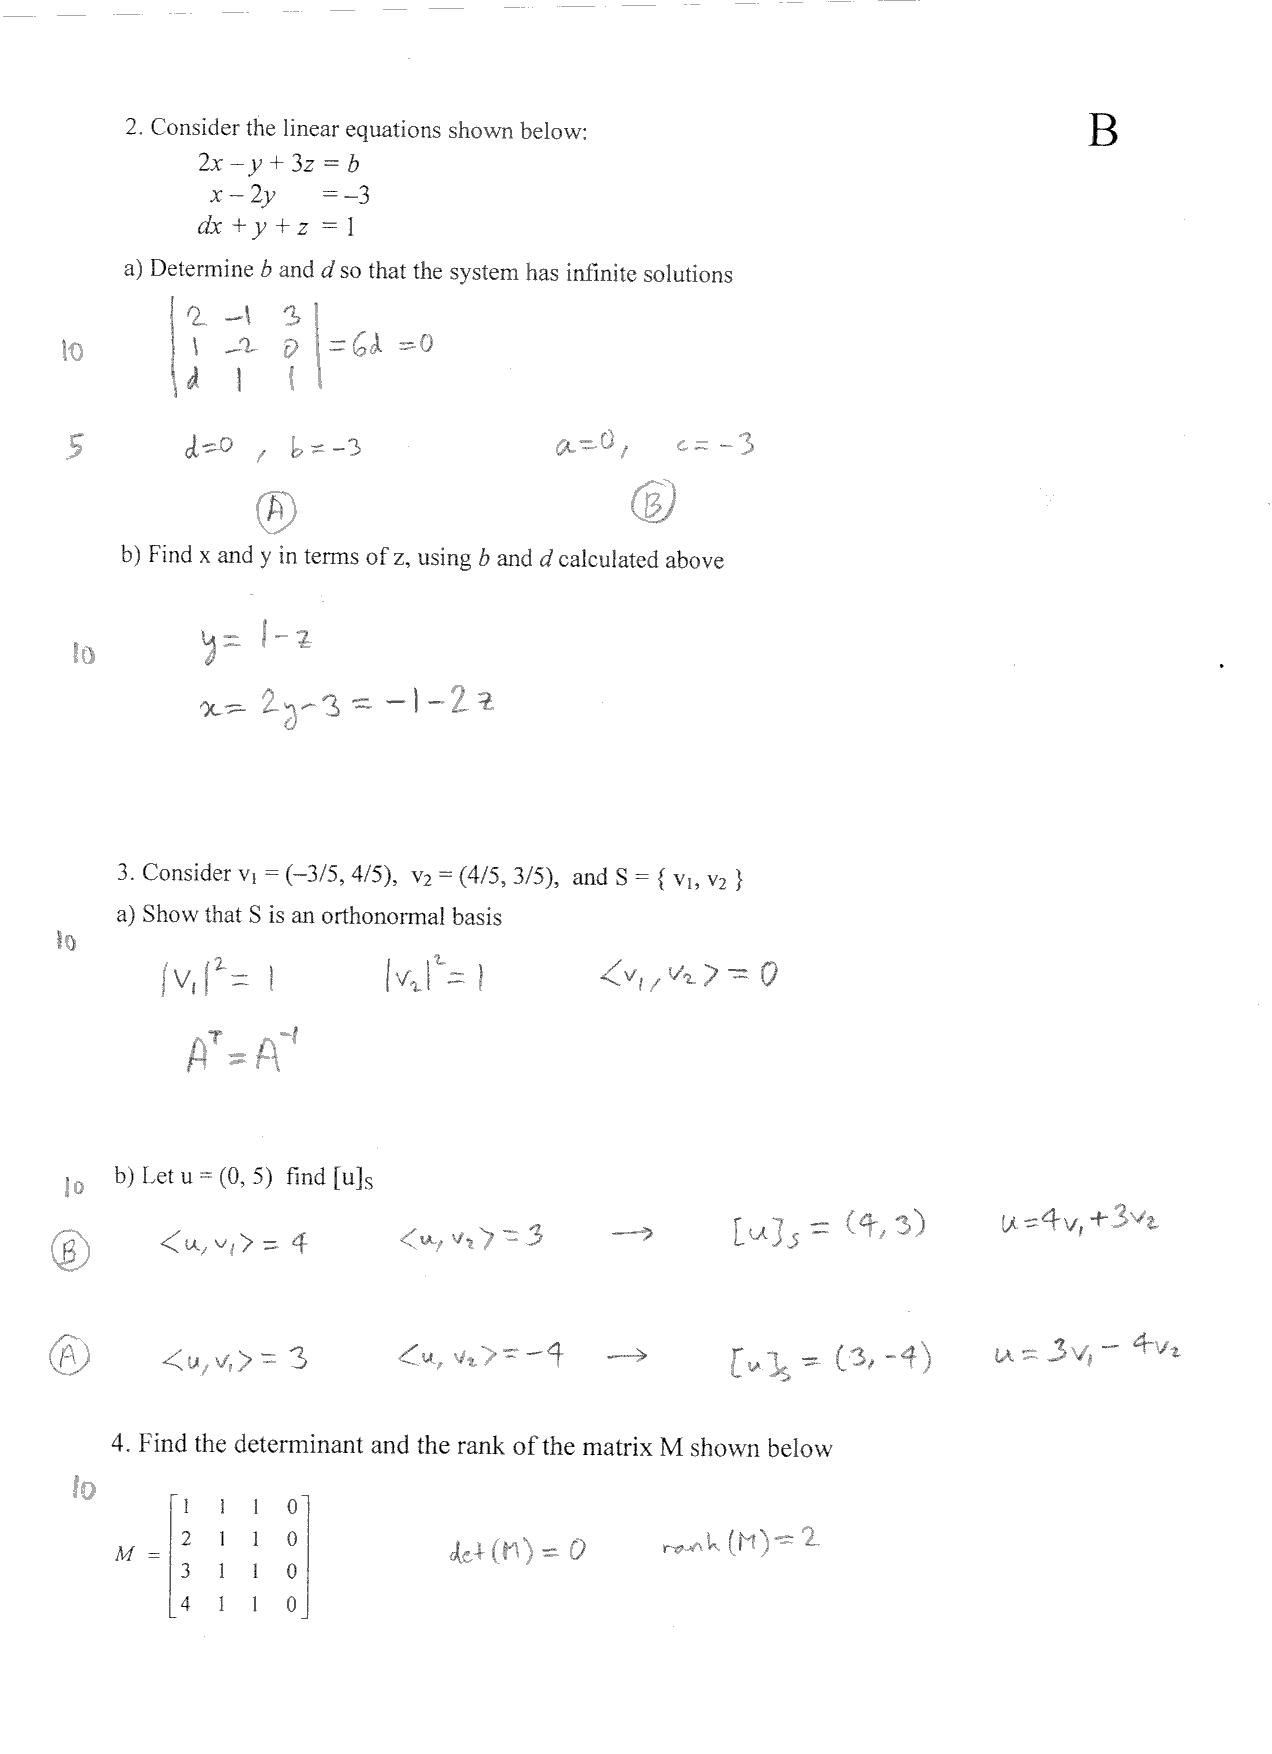 B
2. Consider the linear equations shown below:
2x – y + 3z = b
x – 2y = –3
dx + y + z = 1
a) Determine b and d so that the system has infinite solutions
10
| 2 -1 3 |
| 1 -2 0 | = 6d = 0
| d 1 1 |
5 d=0 , b=-3 a=0, c=-3
A B
b) Find x and y in terms of z, using b and d calculated above
10
y = 1-z
x = 2y-3 = -1-2z
3. Consider v1 = (–3/5, 4/5), v2 = (4/5, 3/5), and S = { v1, v2 }
a) Show that S is an orthonormal basis
10
|v1|² = 1 |v2|² = 1 <v1, v2> = 0
Aᵀ = A⁻¹
10 b) Let u = (0, 5) find [u]S
B <u, v1> = 4 <u, v2> = 3 → [u]s = (4, 3) u = 4v1 + 3v2
A <u, v1> = 3 <u, v2> = -4 → [u]s = (3, -4) u = 3v1 - 4v2
4. Find the determinant and the rank of the matrix M shown below
10
1 1 1 0
2 1 1 0
M = det(M) = 0 rank(M) = 2
3 1 1 0
4 1 1 0